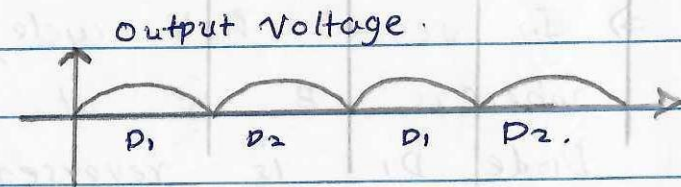 Output Voltage.
D1 D2 D1 D2.